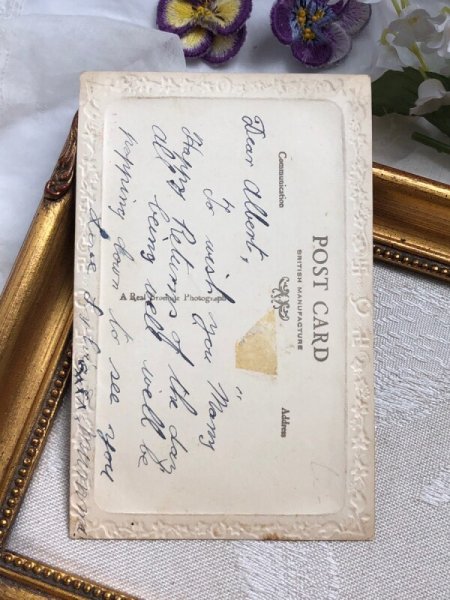 POST CARD
BRITISH MANUFACTURE
Communication
Address
A Real Bromide Photograph
Dear Albert,
To wish you "Many
Happy Returns of the day
all being well will be
popping down to see you
Love